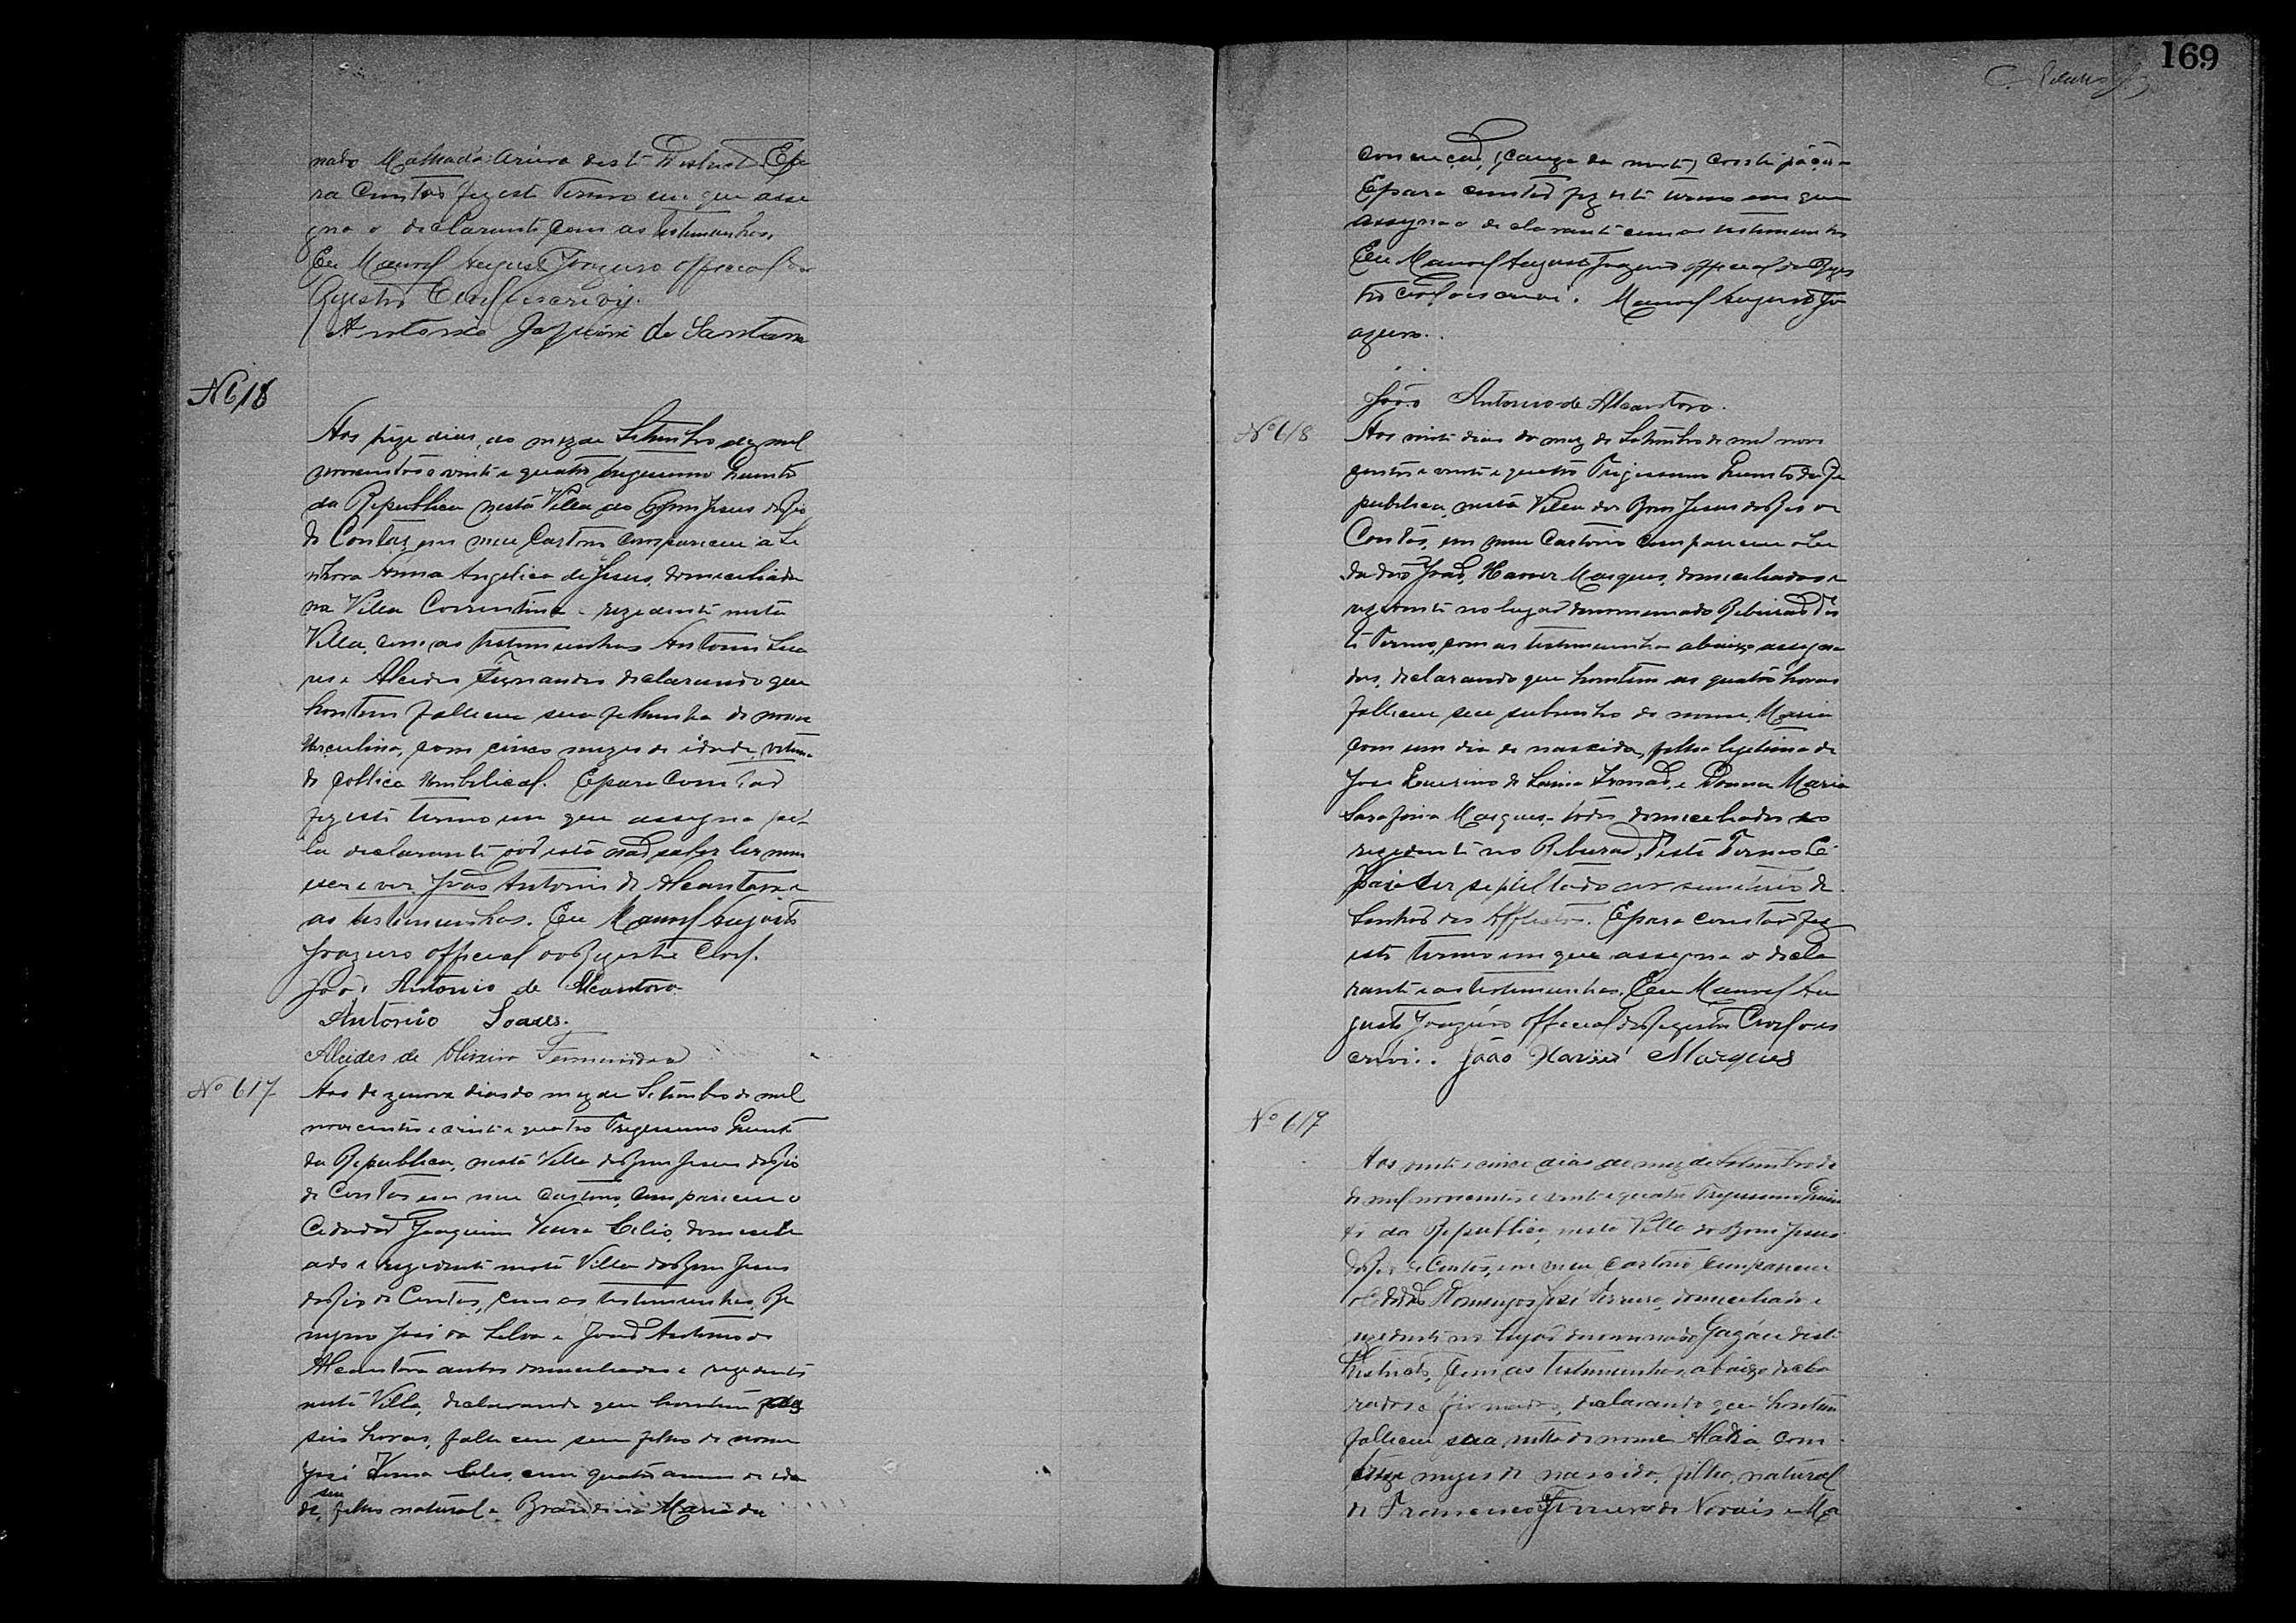 nado Malhada Areia deste Districto. E pa
ra constar fiz este Termo em que assi
gna o declarante com as testemunhas.
Eu Manoel Augusto Joazeiro official do
Registro Civil escrevy.
Antonio Joaquim de Santana
Nº 618
Aos treze dias, do mez de Setembro de mil
novecentos e vinte e quatro, trigesimo quinto
da Republica nesta Villa do Bom Jesus do Rio
de Contas em meu Cartorio compareceu a Se
nhora Anna Angelica de Jesus, domiciliada
na Villa Correntina e rezidente nesta
Villa, com as testemunhas Antonio Soa
res e Alcides Fernandes declarando que
hontem falleceu sua filhinha de nome
Herculina, com cinco mezes de idade, victima
de collica Umbilical. E para constar
fiz este termo em que assigna pe
la declarante por esta não saber ler nem
escrever João Antonio de Alcantara e
as testemunhas. Eu Manoel Augusto
Joazeiro official do Registro Civil.
João Antonio de Alcantara
Antonio Soares.
Alcides de Oliveira Fernandes
Nº 617
Aos dezenove dias do mez de Setembro de mil
novecentos e vinte e quatro Trigesimo Quinto
da Republica, nesta Villa do Bom Jesus do Rio
de Contas em meu Cartorio, compareceu o
Cidadão Joaquim Celio, domicili
ado e rezidente nesta Villa do Bom Jesus
do Rio de Contas, com as testemunhas,
José da Silva e João Antonio de
Alcantara ambos domiciliados e rezidentes
nesta Villa, declarando que hontem pelas
seis horas, falleceu seu filho de nome
José com quatro annos de ida
seu
de, filho natural e Brandina Maria da
169
Conceição, (cauza da morte) constipação
E para constar fiz este termo em que
assigna o declarante com as testemunhas
Eu Manoel Augusto Joazeiro official do Regis
tro civil escrevi. Manoel Augusto Jo
azeiro.
João Antonio de Alcantara.
Nº 618
Aos vinte dias do mez de Setembro de mil nove
centos e vinte e quatro Trigesimo Quinto da Re
publica, nesta Villa do Bom Jesus do Rio de
Contas, em meu Cartorio compareceu o Ci
dadão João Xavier Marques, domiciliado e
rezidente no lugar denominado Ribeirão des
te Termo, com as testemunhas abaixo assigna
das, declarando que hontem as quatro horas
falleceu seu sobrinho de nome Maria
com um dia de nascida, filha legitima de
José de Sousa e Donna Maria
Marques todos domiciliados e
rezidente no Ribeirão, deste Termo E
para ser sepultado no cemiterio de
Senhor dos Afflictos. E para constar fiz
este termo em que assigna o decla
rante e as testemunhas. Eu Manoel Au
gusto Joazeiro Official do Registro Civil es
crevi. João Xavier Marques
Nº 619
Aos vinte e cinco dias do mez de Setembro de
de mil novecentos e vinte e quatro Trigesimo Quin
to da Republica, nesta Villa do Bom Jesus
do Rio de Contas, em meu cartorio, compareceu
o Cidadão Domingos José Ferreira, domiciliado e
rezidente no lugar denominado deste
Districto, com as testemunhas, abaixo decla
rados e firmados, declarando que hontem
falleceu sua netta de nome Maria, com
mezes de nascida, filha, natural
de Francisco Ferreira de Novais e Ma